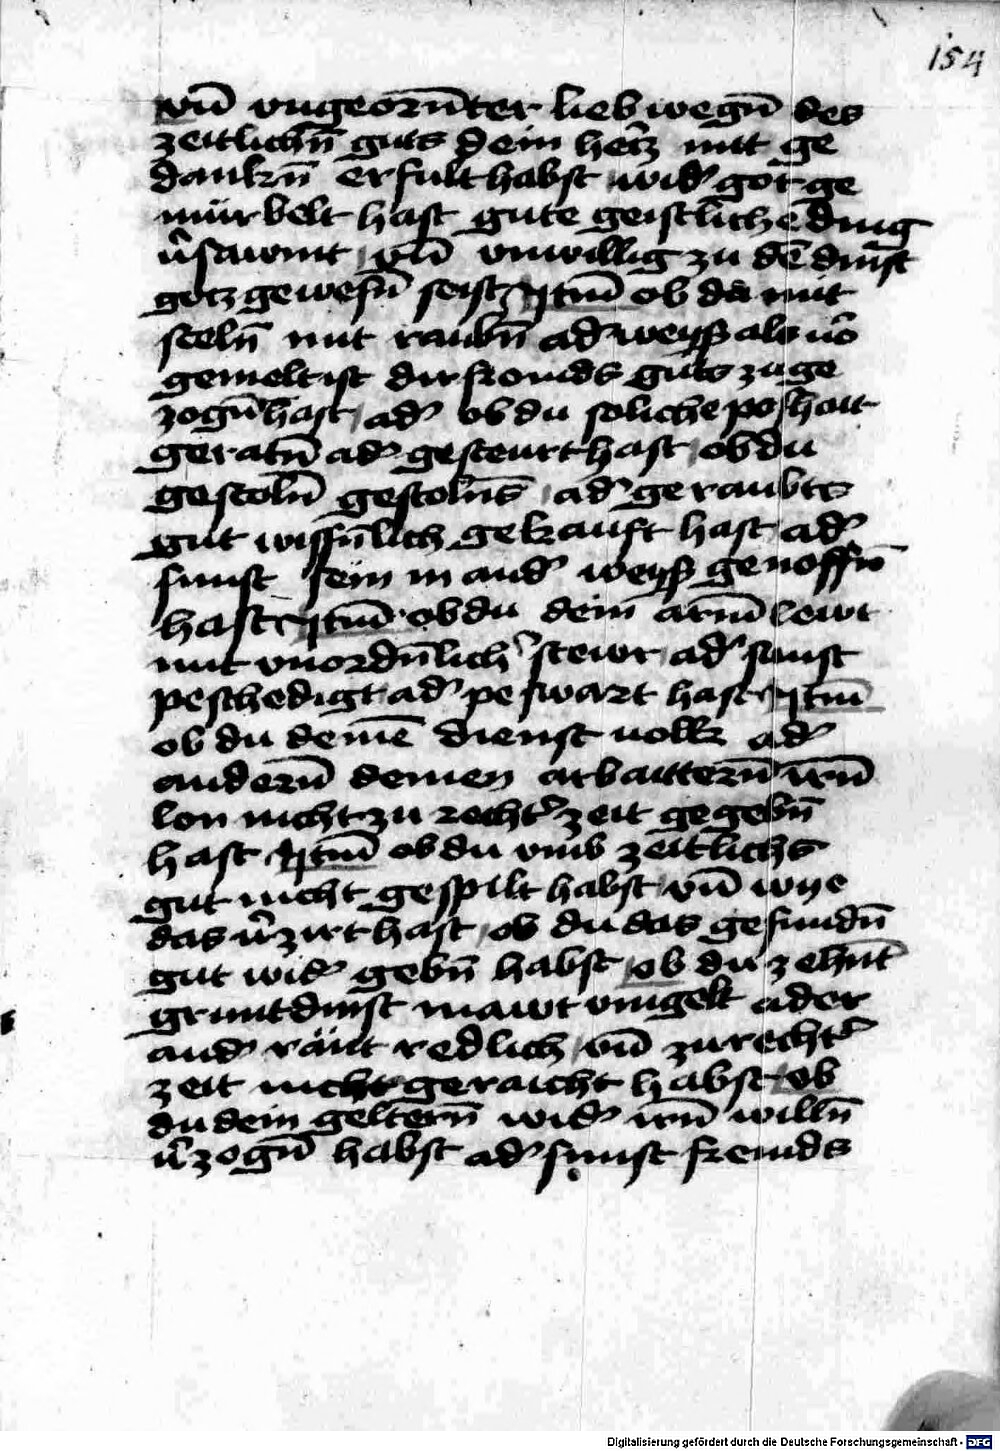 154
vñ vngeorñter lieb wegñ des
zeitlichñ guts dein hertz mit ge
dankñ erfult habst wid' got ge
mürbelt hast gute geistliche ding
v'sawmt vñ vnwillig zu dē dinst
gotz gewesñ seist Jtm̄ ob du mit
stelñ mit raubñ ad' weyß als vor
gemelt ist dir fromds guts zu ge
zogñ hast ad' ob du soliche poshait
geratñ ad' gesteurt hast ob du
gestolñ gestolns ad' geraubts
gut wissñlich gekauft hast ad'
sunst sein in and' weyß genossñ
hast Jtm̄ ob du dein armñ lewt
mit vnordñlich' stewr ad' sunst
peschedigt ad' peswart hast Jtm̄
ob du deinē dienst volk ad'
anderñ deinen arbaitterñ irñ
lon nicht zu recht' zeit gegebñ
hast Jtm̄ ob du vmb zeitlichs
gut nicht gespilt habst vñ wye
das v'zirt hast ob du das gefundñ
gut wid' gebñ habst ob du zehñt
gruntdinst mawt vmgelt ader
and' ränt redlich vñ zu recht'
zeit nicht geraicht habst ob
du dein gelterñ wid' irñ willñ
v'zogñ habst ad' sunst fremds
Digitalisierung gefördert durch die Deutsche Forschungsgemeinschaft - DFG